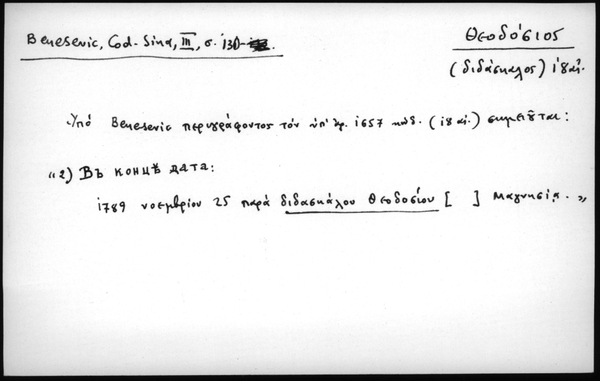 Benesevic, Cod. Sina, III, σ. 130-
Θεοδόσιος
(διδάσκαλος) ιη΄ αἰ.
Ὑπό Benesevic περιγράφοντος τόν ὑπ' ἀρ. 1657 κώδ. (ιη΄ αἰ.) σημειοῦται:
"2) Въ концѣ дата:
1789 νοεμβρίου 25 παρά διδασκάλου Θεοδοσίου [ ] Μαγνησία."